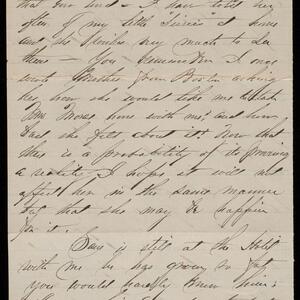 that our and - I have told her
often of my little Sissie at home
and she wishes very much to see
them - You remember I once
wrote Mother from Boston asking
her how she would like me to take
Mrs Morse home with me, and how
bad she felt about it: now that
there is a probability of its proving
a reality I hope it will not
affect her in the same manner
but that she may be happier
for it.
Sam is still at the Hotel
with me he has grown so fat
you would hardly know him: